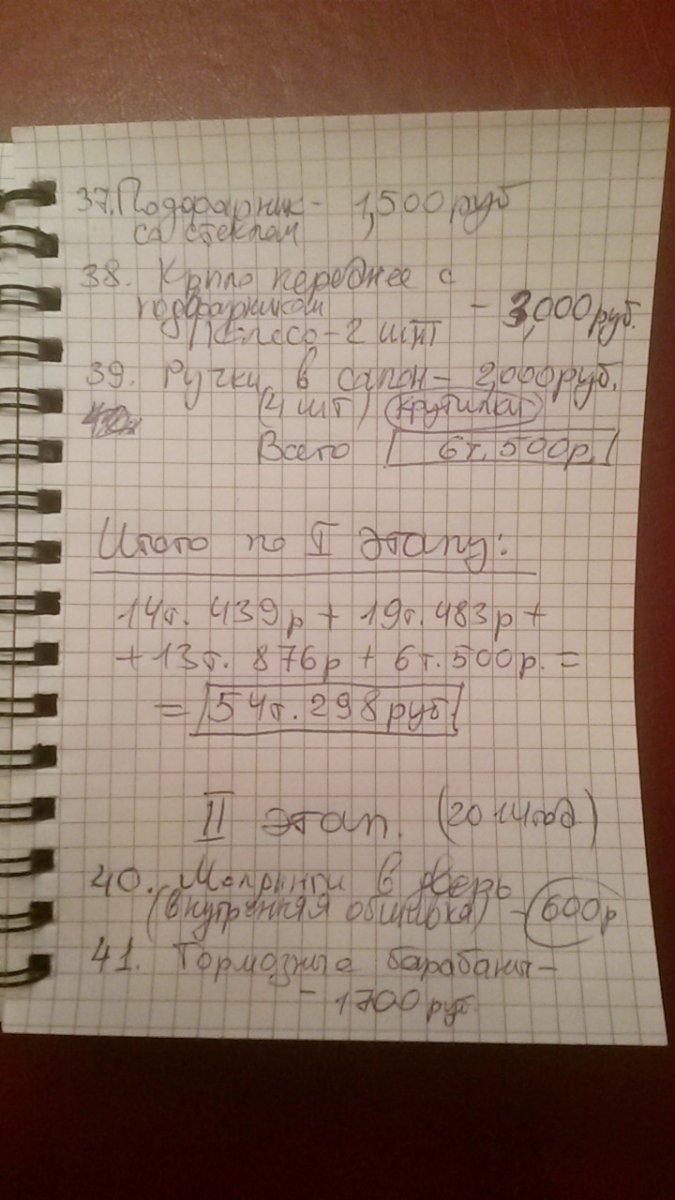 37. Подфарник - 1,500 руб
со стеклом
38. Крыло переднее с
подфарником - 3,000 руб.
- 2 шт
39. Ручки в салон - 2,000 руб.
(4 шт)
Всего 6т. 500р.
Итого по I этапу:
14т. 439р + 19т. 483р +
+ 13т. 876р + 6т. 500р. =
= 54т. 298 руб
II этап. (2014 год)
40. Молдинги в дверь
(внутренняя обшивка) - 600р
41. Тормозные барабаны -
- 1700 руб.